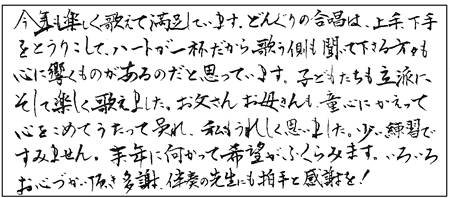 今年も楽しく歌えて満足しています。どんぐりの合唱は、上手、下手
をとうりこして、ハートが一杯だから歌う側も聞いて下さる方々も
心に響くものがあるのだと思っています。子どもたちも立派に
そして楽しく歌えました。お父さんお母さんも、童心にかえって
心をこめてうたって呉れ、私もうれしく思いました。少い練習で
すみません。来年に向かって希望がふくらみます。いろいろ
お心づかい頂き多謝、伴奏の先生にも拍手と感謝を!